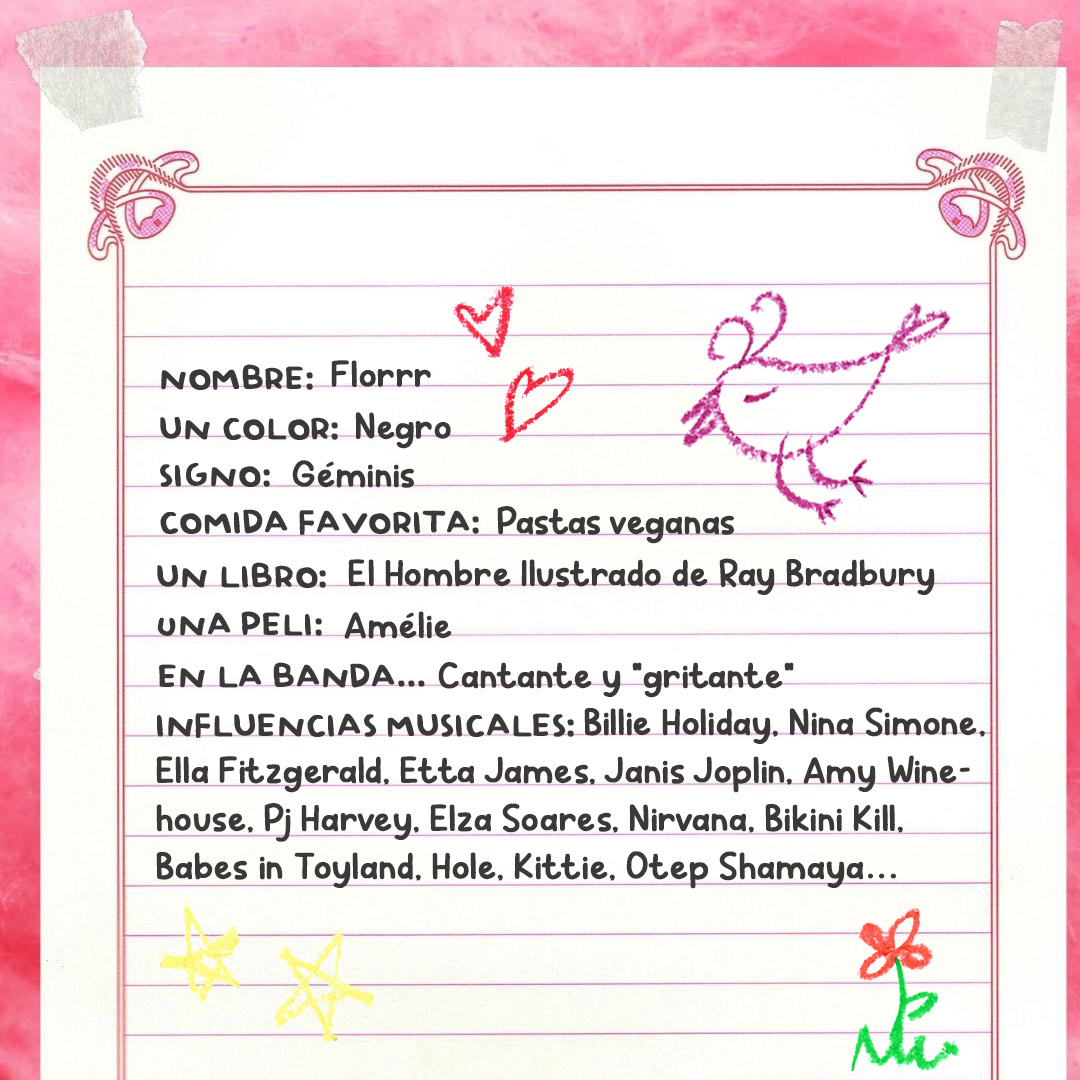 NOMBRE: Florrr
UN COLOR: Negro
SIGNO: Géminis
COMIDA FAVORITA: Pastas veganas
UN LIBRO: El Hombre Ilustrado de Ray Bradbury
UNA PELI: Amélie
EN LA BANDA... Cantante y "gritante"
INFLUENCIAS MUSICALES: Billie Holiday, Nina Simone,
Ella Fitzgerald, Etta James, Janis Joplin, Amy Wine-
house, Pj Harvey, Elza Soares, Nirvana, Bikini Kill,
Babes in Toyland, Hole, Kittie, Otep Shamaya...